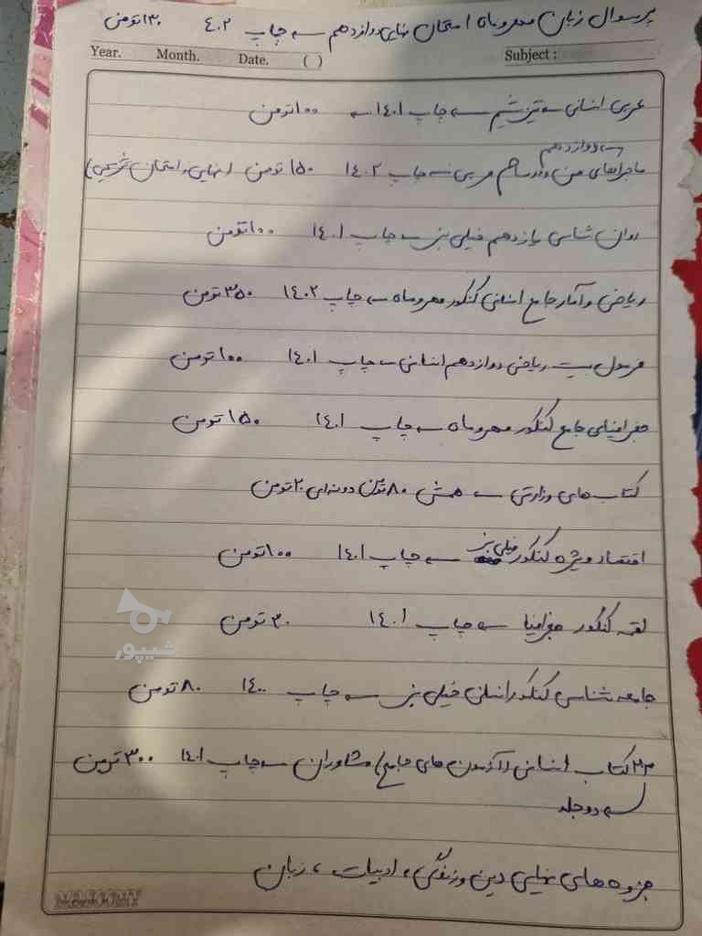 پرسوال زبان مهروماه امتحان نهایی دوازدهم ← چاپ ۴۰۲ ۱۳۰تومن
Year. Month. Date. ( ) Subject :
عربی انسانی ← تیزشیم ← چاپ ۱۴۰۱ ← ۱۰۰تومن
← دوازدهم
ماجراهای من و درسام عربی ← چاپ ۱۴۰۲ ۱۵۰ تومن (نهایی، امتحان تشریحی)
روان شناسی یازدهم خیلی سبز ← چاپ ۱۴۰۱ ۱۰۰تومن
ریاضی و آمار جامع انسانی کنکور مهروماه ← چاپ ۱۴۰۲ ۳۵۰تومن
فرمول بیست ریاضی دوازدهم انسانی ← چاپ ۱۴۰۱ ۱۰۰تومن
جغرافیای جامع کنکور مهروماه ← چاپ ۱۴۰۱ ۱۵۰تومن
کتاب های وزارتی ← همش ۸۰تومن دونه‌ای ۲۰تومن
اقتصاد ویژه کنکور خیلی سبز ← چاپ ۱۴۰۱ ۱۰۰تومن
لقمه کنکور جغرافیا ← چاپ ۱۴۰۱ ۳۰تومن
جامعه شناسی کنکور انسانی خیلی سبز ← چاپ ۱۴۰۰ ۸۰تومن
کتاب انسانی (آزمون های جامع) مشاوران ← چاپ ۱۴۰۱ ۳۰۰تومن
← دو جلد
جزوه های خیلی دین و زندگی، ادبیات، زبان
شیپور